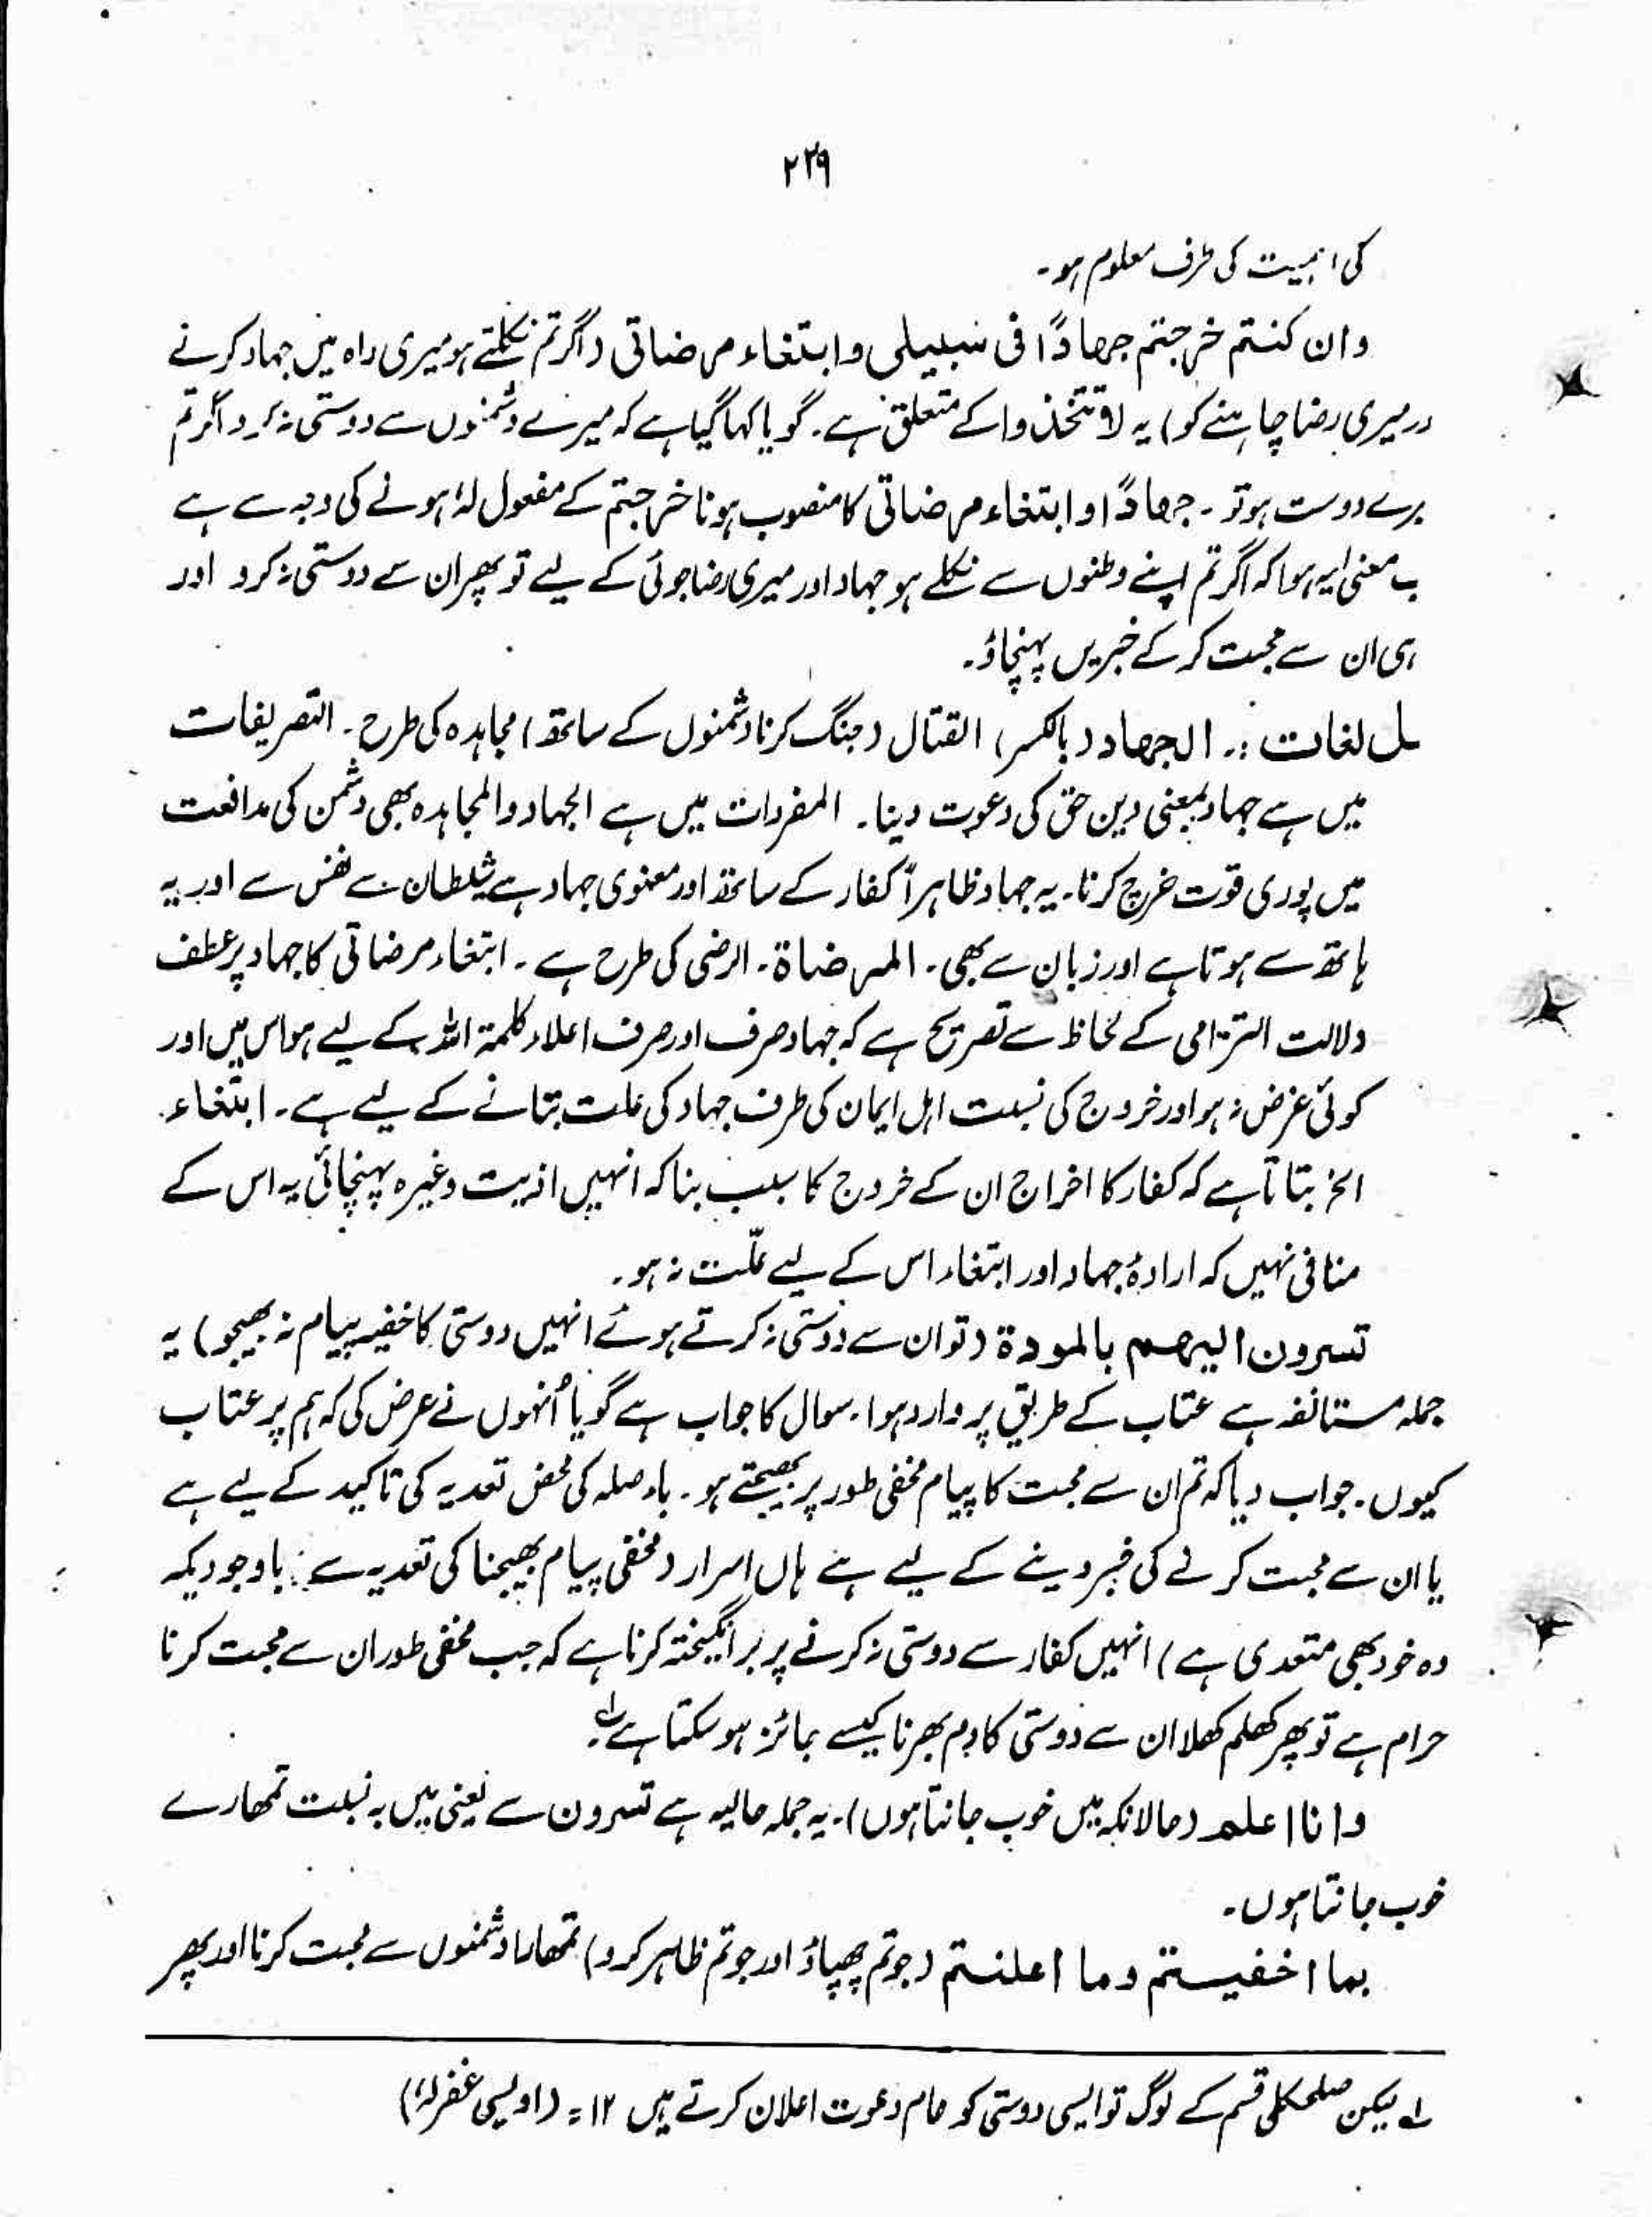 ۲۳۹
کی اہمیت کی طرف معلوم ہو۔
وان کنتم خرجتم جھادًا فی سبیلی وابتغاء مرضاتی (اگر تم نکلتے ہو میری راہ میں جہاد کرنے
در میری رضا چاہنے کو) یہ لاتتخذوا کے متعلق ہے۔ گویا کہا گیا ہے کہ میرے دشمنوں سے دوستی نہ کرو اگر تم
برے دوست ہو تو۔ جھادًا وابتغاء مرضاتی کا منصوب ہونا خرجتم کے مفعول لہٗ ہونے کی وجہ سے ہے
ب معنی یہ ہوا کہ اگر تم اپنے وطنوں سے نکلے ہو جہاد اور میری رضا جوئی کے لیے تو پھر ان سے دوستی نہ کرو اور
ہی ان سے محبت کر کے خبریں پہنچاؤ۔
حل لغات :۔ الجھاد (بالکسر) القتال (جنگ کرنا دشمنوں کے ساتھ) مجاہدہ کی طرح۔ التعریفات
میں ہے جہاد بمعنی دین حق کی دعوت دینا۔ المفردات میں ہے الجہاد والمجاہدہ بھی دشمن کی مدافعت
میں پوری قوت خرچ کرنا۔ یہ جہاد ظاہراً کفار کے ساتھ اور معنوی جہاد ہے شیطان سے نفس سے اور یہ
ہاتھ سے ہوتا ہے اور زبان سے بھی۔ المرضاۃ۔ الرضی کی طرح ہے۔ ابتغاء مرضاتی کا جہاد پر عطف
دلالت التزامی کے لحاظ سے تصریح ہے کہ جہاد صرف اور صرف اعلاء کلمۃ اللہ کے لیے ہو اس میں اور
کوئی غرض نہ ہو اور خروج کی نسبت اہل ایمان کی طرف جہاد کی علت بتانے کے لیے ہے۔ ابتغاء
الخ بتاتا ہے کہ کفار کا اخراج ان کے خروج کا سبب بنا کہ انہیں اذیت وغیرہ پہنچائی یہ اس کے
منافی نہیں کہ ارادۂ جہاد اور ابتغاء اس کے لیے علّت نہ ہو۔
تسرون الیھم بالمودۃ (تو ان سے دوستی نہ کرتے ہوئے انہیں دوستی کا خفیہ پیام نہ بھیجو) یہ
جملہ مستانفہ ہے عتاب کے طریق پر وارد ہوا۔ سوال کا جواب ہے گویا اُنہوں نے عرض کی کہ ہم پر عتاب
کیوں۔ جواب دیا کہ تم ان سے محبت کا پیام مخفی طور پر بھیجتے ہو۔ باء صلہ کی محض تعدیہ کی تاکید کے لیے ہے
یا ان سے محبت کرنے کی خبر دینے کے لیے ہے ہاں اسرار (مخفی پیام بھیجنا کی تعدیہ سے باوجودیکہ
وہ خود بھی متعدی ہے) انہیں کفار سے دوستی نہ کرنے پر برانگیختہ کرنا ہے کہ جب مخفی طور ان سے محبت کرنا
حرام ہے تو پھر کھلم کھلا ان سے دوستی کا دم بھرنا کیسے جائز ہو سکتا ہے لہ۔
وانا اعلم (حالانکہ میں خوب جانتا ہوں)۔ یہ جملہ حالیہ ہے تسرون سے یعنی میں بہ نسبت تمھارے
خوب جانتا ہوں۔
بما اخفیتم وما اعلنتم (جو تم چھپاؤ اور جو تم ظاہر کرو) تمھارا دشمنوں سے محبت کرنا اور پھر
لہ لیکن صلحکلی قسم کے لوگ تو ایسی دوستی کو عام دعوت اعلان کرتے ہیں ۱۲ = (اویسی غفرلہٗ)